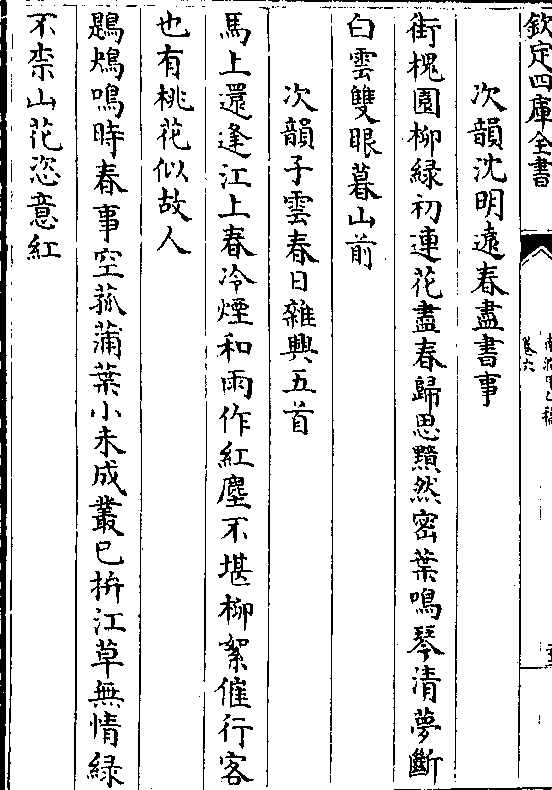 欽定四庫全書
卷六
次韻沈明遠春盡書事
街槐園柳緑初連花盡春歸思黯然密葉鳴琴清夢斷
白雲雙眼暮山前
次韻子雲春日雜興五首
馬上還逢江上春冷煙和雨作紅塵不堪柳絮催行客
也有桃花似故人
鶗鴂鳴時春事空菰蒲葉小未成叢已拚江草無情緑
不柰山花恣意紅